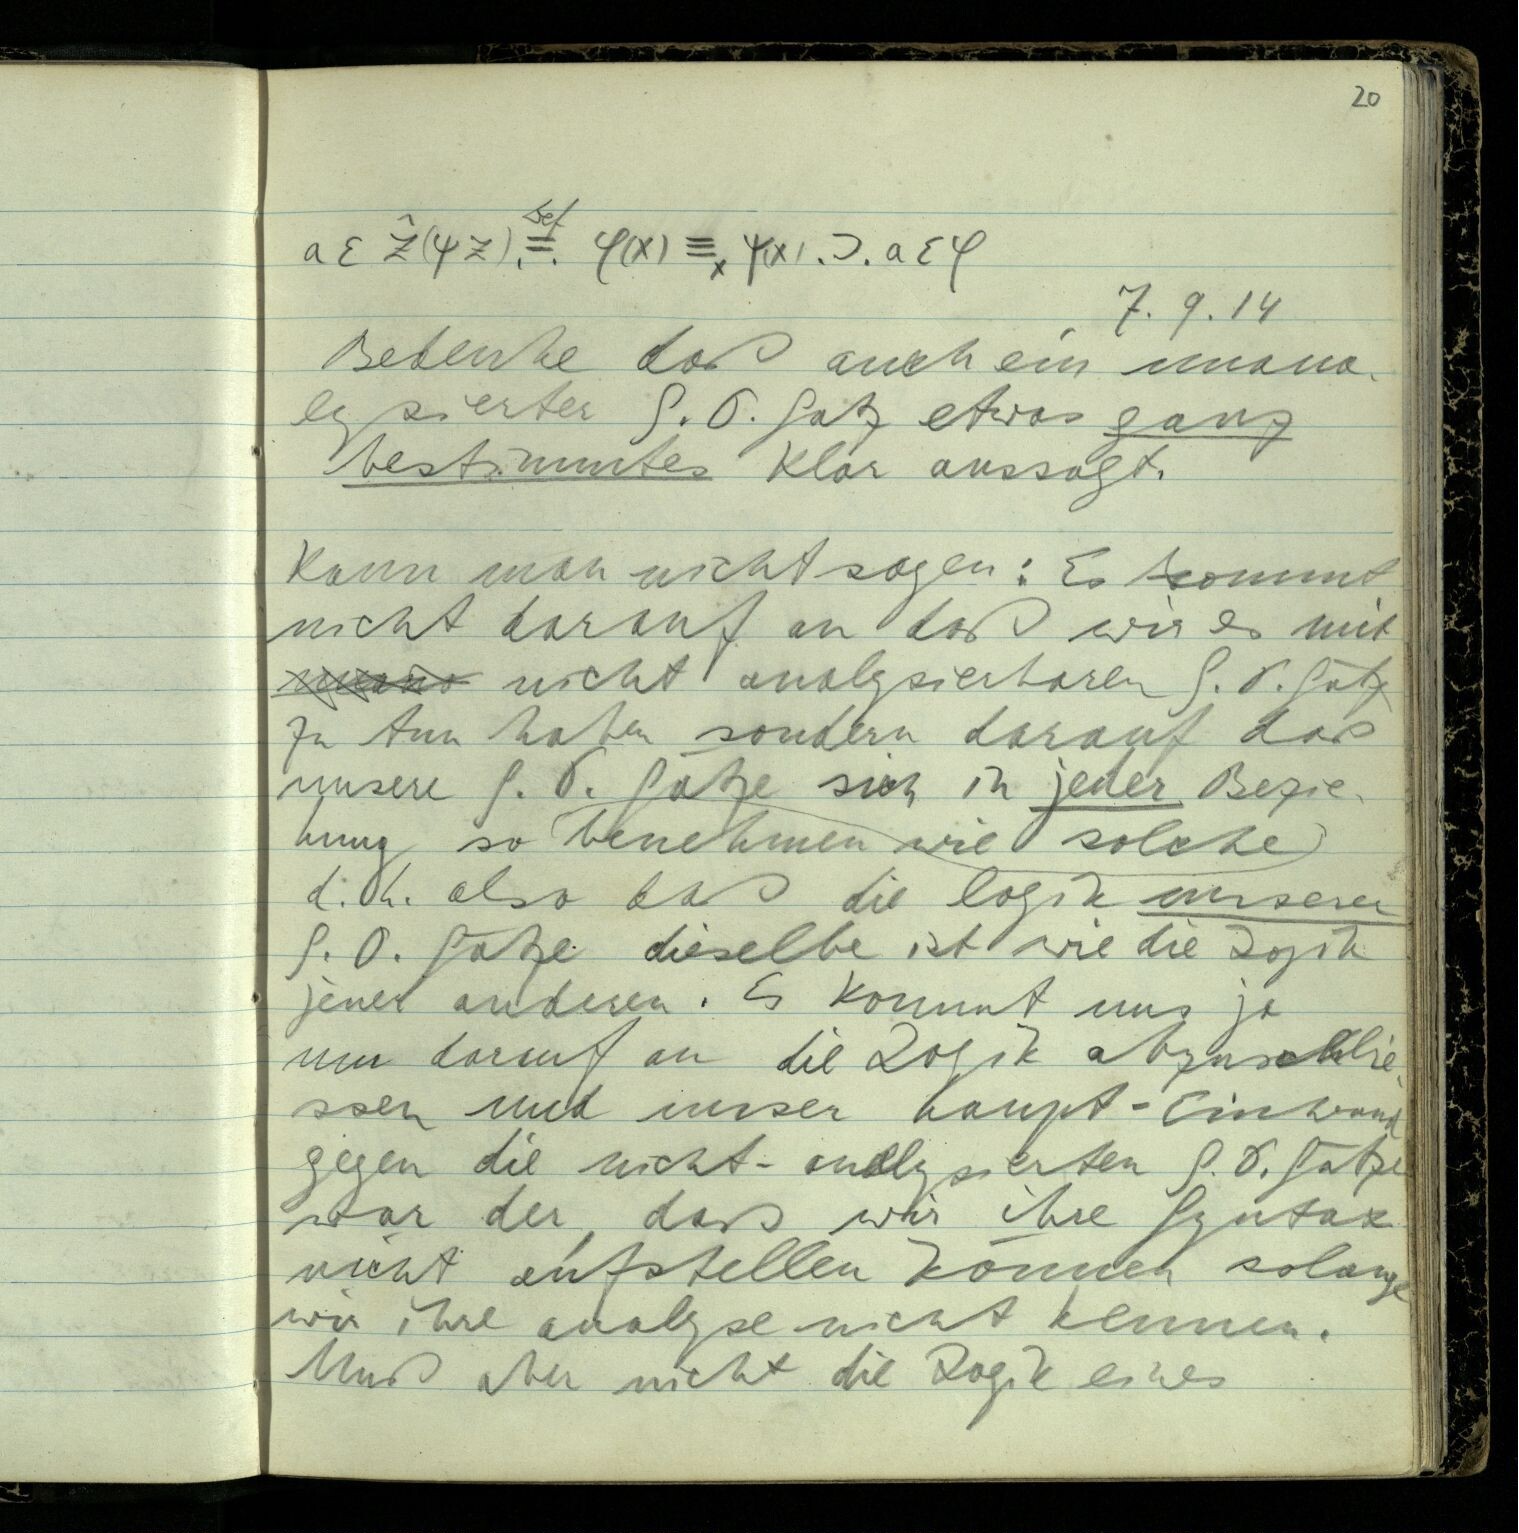 20
Def
a ε ẑ(ψz) .≡. φ(x) ≡ₓ ψ(x) .⊃. a ε φ
7. 9. 14
Bedenke daß auch ein unana-
lysierter S. O. Satz etwas ganz
bestimmtes klar aussagt.
Kann man nicht sagen: Es kommt
nicht darauf an daß wir es mit
nicht analysierbaren S. O. Sätz
zu tun haben sondern darauf daß
unsere S. O. Sätze sich in jeder Bezie-
hung so benehmen wie solche
d. h. also daß die Logik unserer
S. O. Sätze dieselbe ist wie die Logik
jener anderen. Es kommt uns ja
nur darauf an die Logik abzuschlie-
ssen und unser haupt-Einwand
gegen die nicht-analysierten S. O. Sätze
war der, daß wir ihre Syntax
nicht aufstellen können solange
wir ihre analyse nicht kennen.
Muß aber nicht die Logik eines